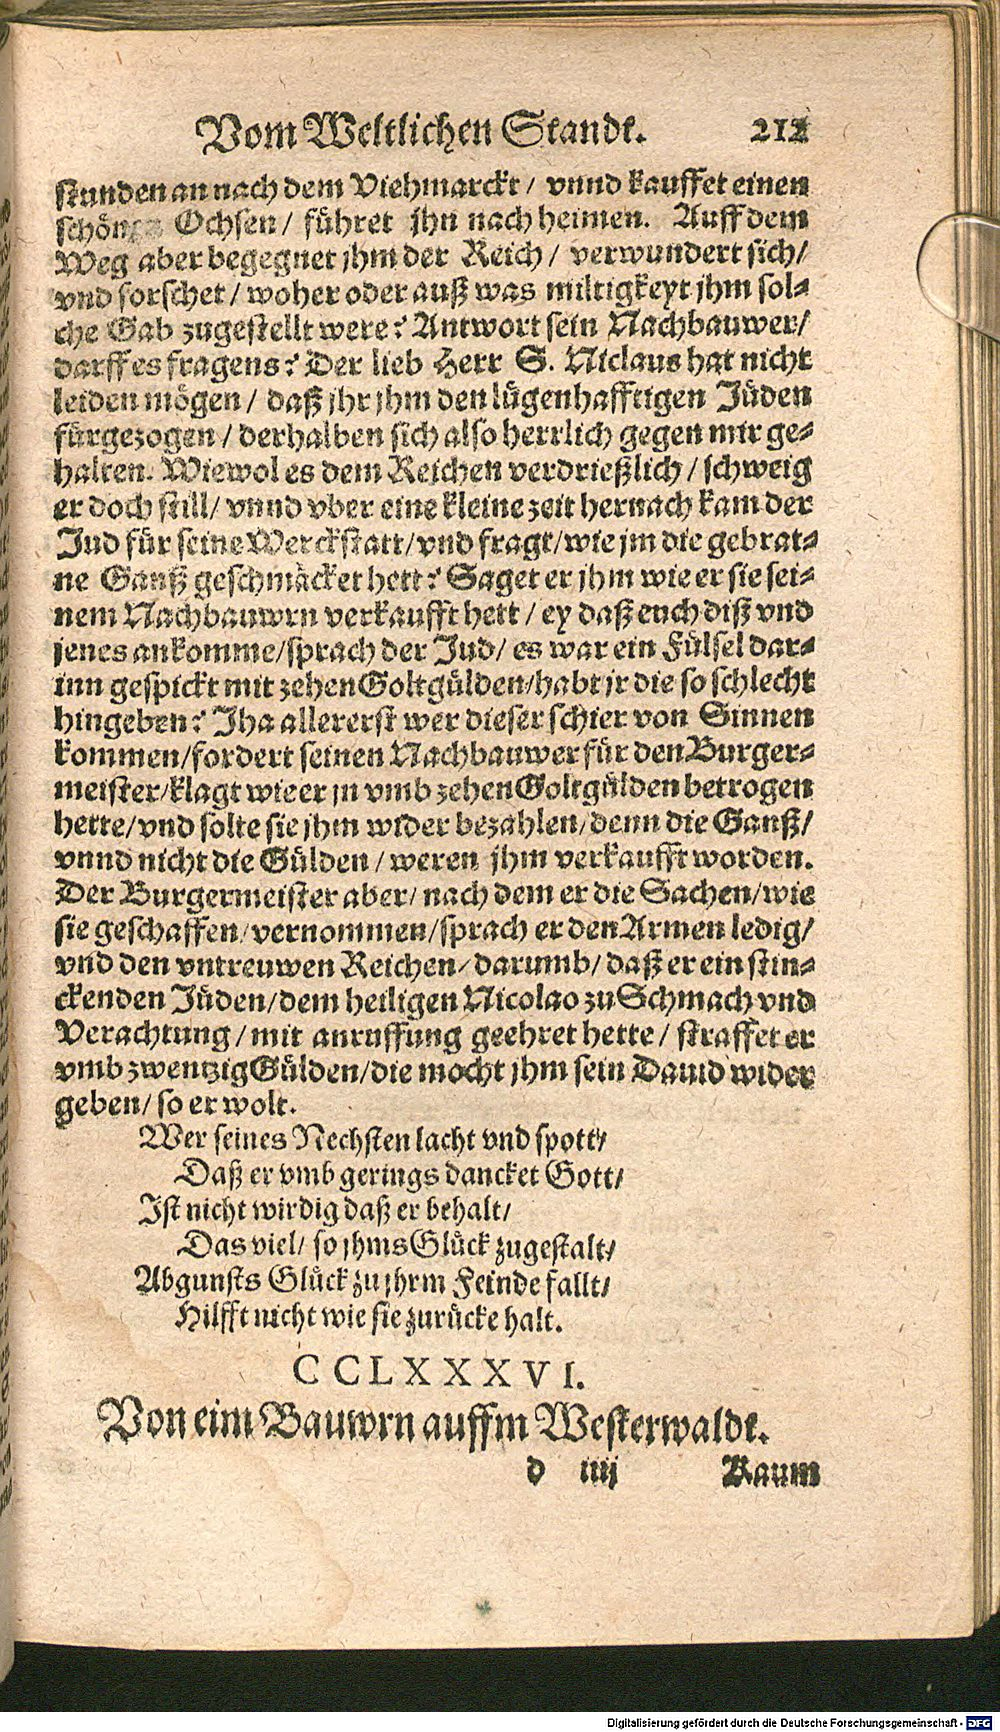 Vom Weltlichen Standt. 212
stunden an nach dem Viehmarckt / vnnd kauffet einen
schönen Ochsen / führet jhn nach heimen. Auff dem
Weg aber begegnet jhm der Reich / verwundert sich /
vnd forschet / woher oder auß was miltigkeyt jhm sol-
che Gab zugestellt were? Antwort sein Nachbauwer /
darff es fragens? Der lieb Herr S. Niclaus hat nicht
leiden mögen / daß jhr jhm den lügenhafftigen Jüden
fürgezogen / derhalben sich also herrlich gegen mir ge-
halten. Wiewol es dem Reichen verdrießlich / schweig
er doch still / vnnd vber eine kleine zeit hernach kam der
Jud für seine Werckstatt / vnd fragt / wie jm die gebrat-
ne Ganß geschmäcket hett? Saget er jhm wie er sie sei-
nem Nachbauwrn verkaufft hett / ey daß euch diß vnd
jenes ankomme / sprach der Jud / es war ein Fülsel dar-
inn gespickt mit zehen Goltgülden / habt jr die so schlecht
hingeben? Jha allererst wer dieser schier von Sinnen
kommen / fordert seinen Nachbauwer für den Burger-
meister / klagt wie er jn vmb zehen Goltgülden betrogen
hette / vnd solte sie jhm wider bezahlen / denn die Ganß /
vnnd nicht die Gülden / weren jhm verkaufft worden.
Der Burgermeister aber / nach dem er die Sachen / wie
sie geschaffen / vernommen / sprach er den Armen ledig /
vnd den vntreuwen Reichen / darumb / daß er ein stin-
ckenden Jüden / dem heiligen Nicolao zu Schmach vnd
Verachtung / mit anruffung geehret hette / straffet er
vmb zwentzig Gülden / die mocht jhm sein Dauid wider
geben / so er wolt.
Wer seines Nechsten lacht vnd spott /
Daß er vmb gerings dancket Gott /
Ist nicht wirdig daß er behalt /
Das viel / so jhms Glück zugestalt /
Abgunsts Glück zu jhrm Feinde fallt /
Hilfft nicht wie sie zurücke halt.
CCLXXXVI.
Von eim Bauwrn auffm Westerwaldt.
d iiij Kaum
Digitalisierung gefördert durch die Deutsche Forschungsgemeinschaft - DFG